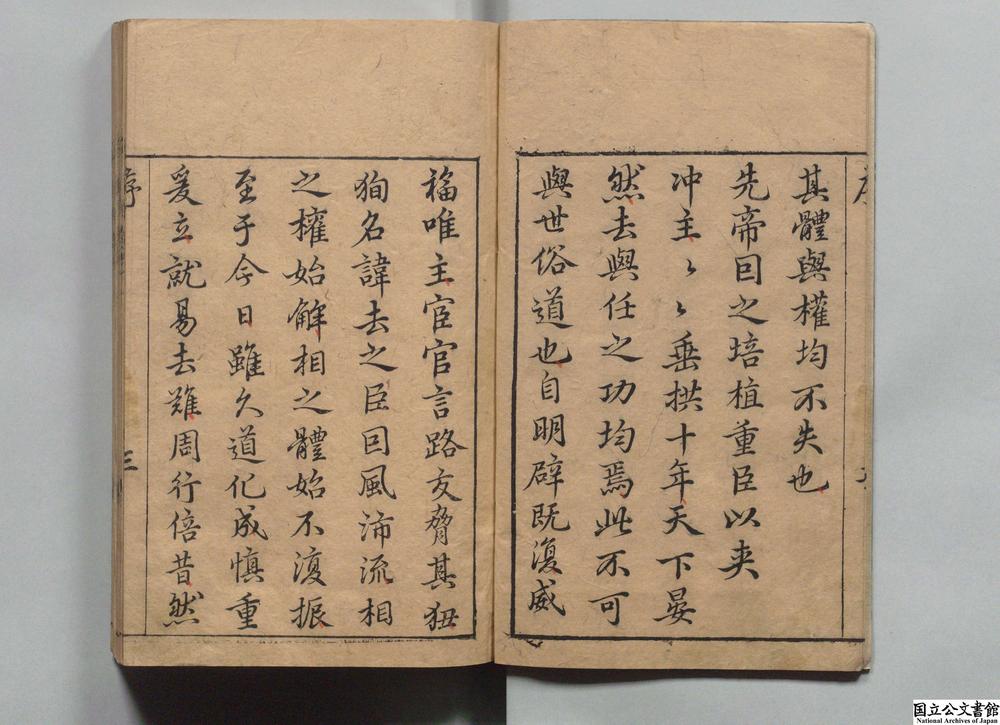 其體與權均不失也
先帝囙之培植重臣以夹
冲主〻〻垂拱十年天下晏
然去與任之功均焉此不可
與世俗道也自明辟既復威
福唯主宦官言路交脅其
狥名諱去之臣囙風沛流相
之權始解相之體始不復振
至于今日雖久道化成慎重
爰立就易去難周行倍昔然
序
三
国立公文書館
National Archives of Japan